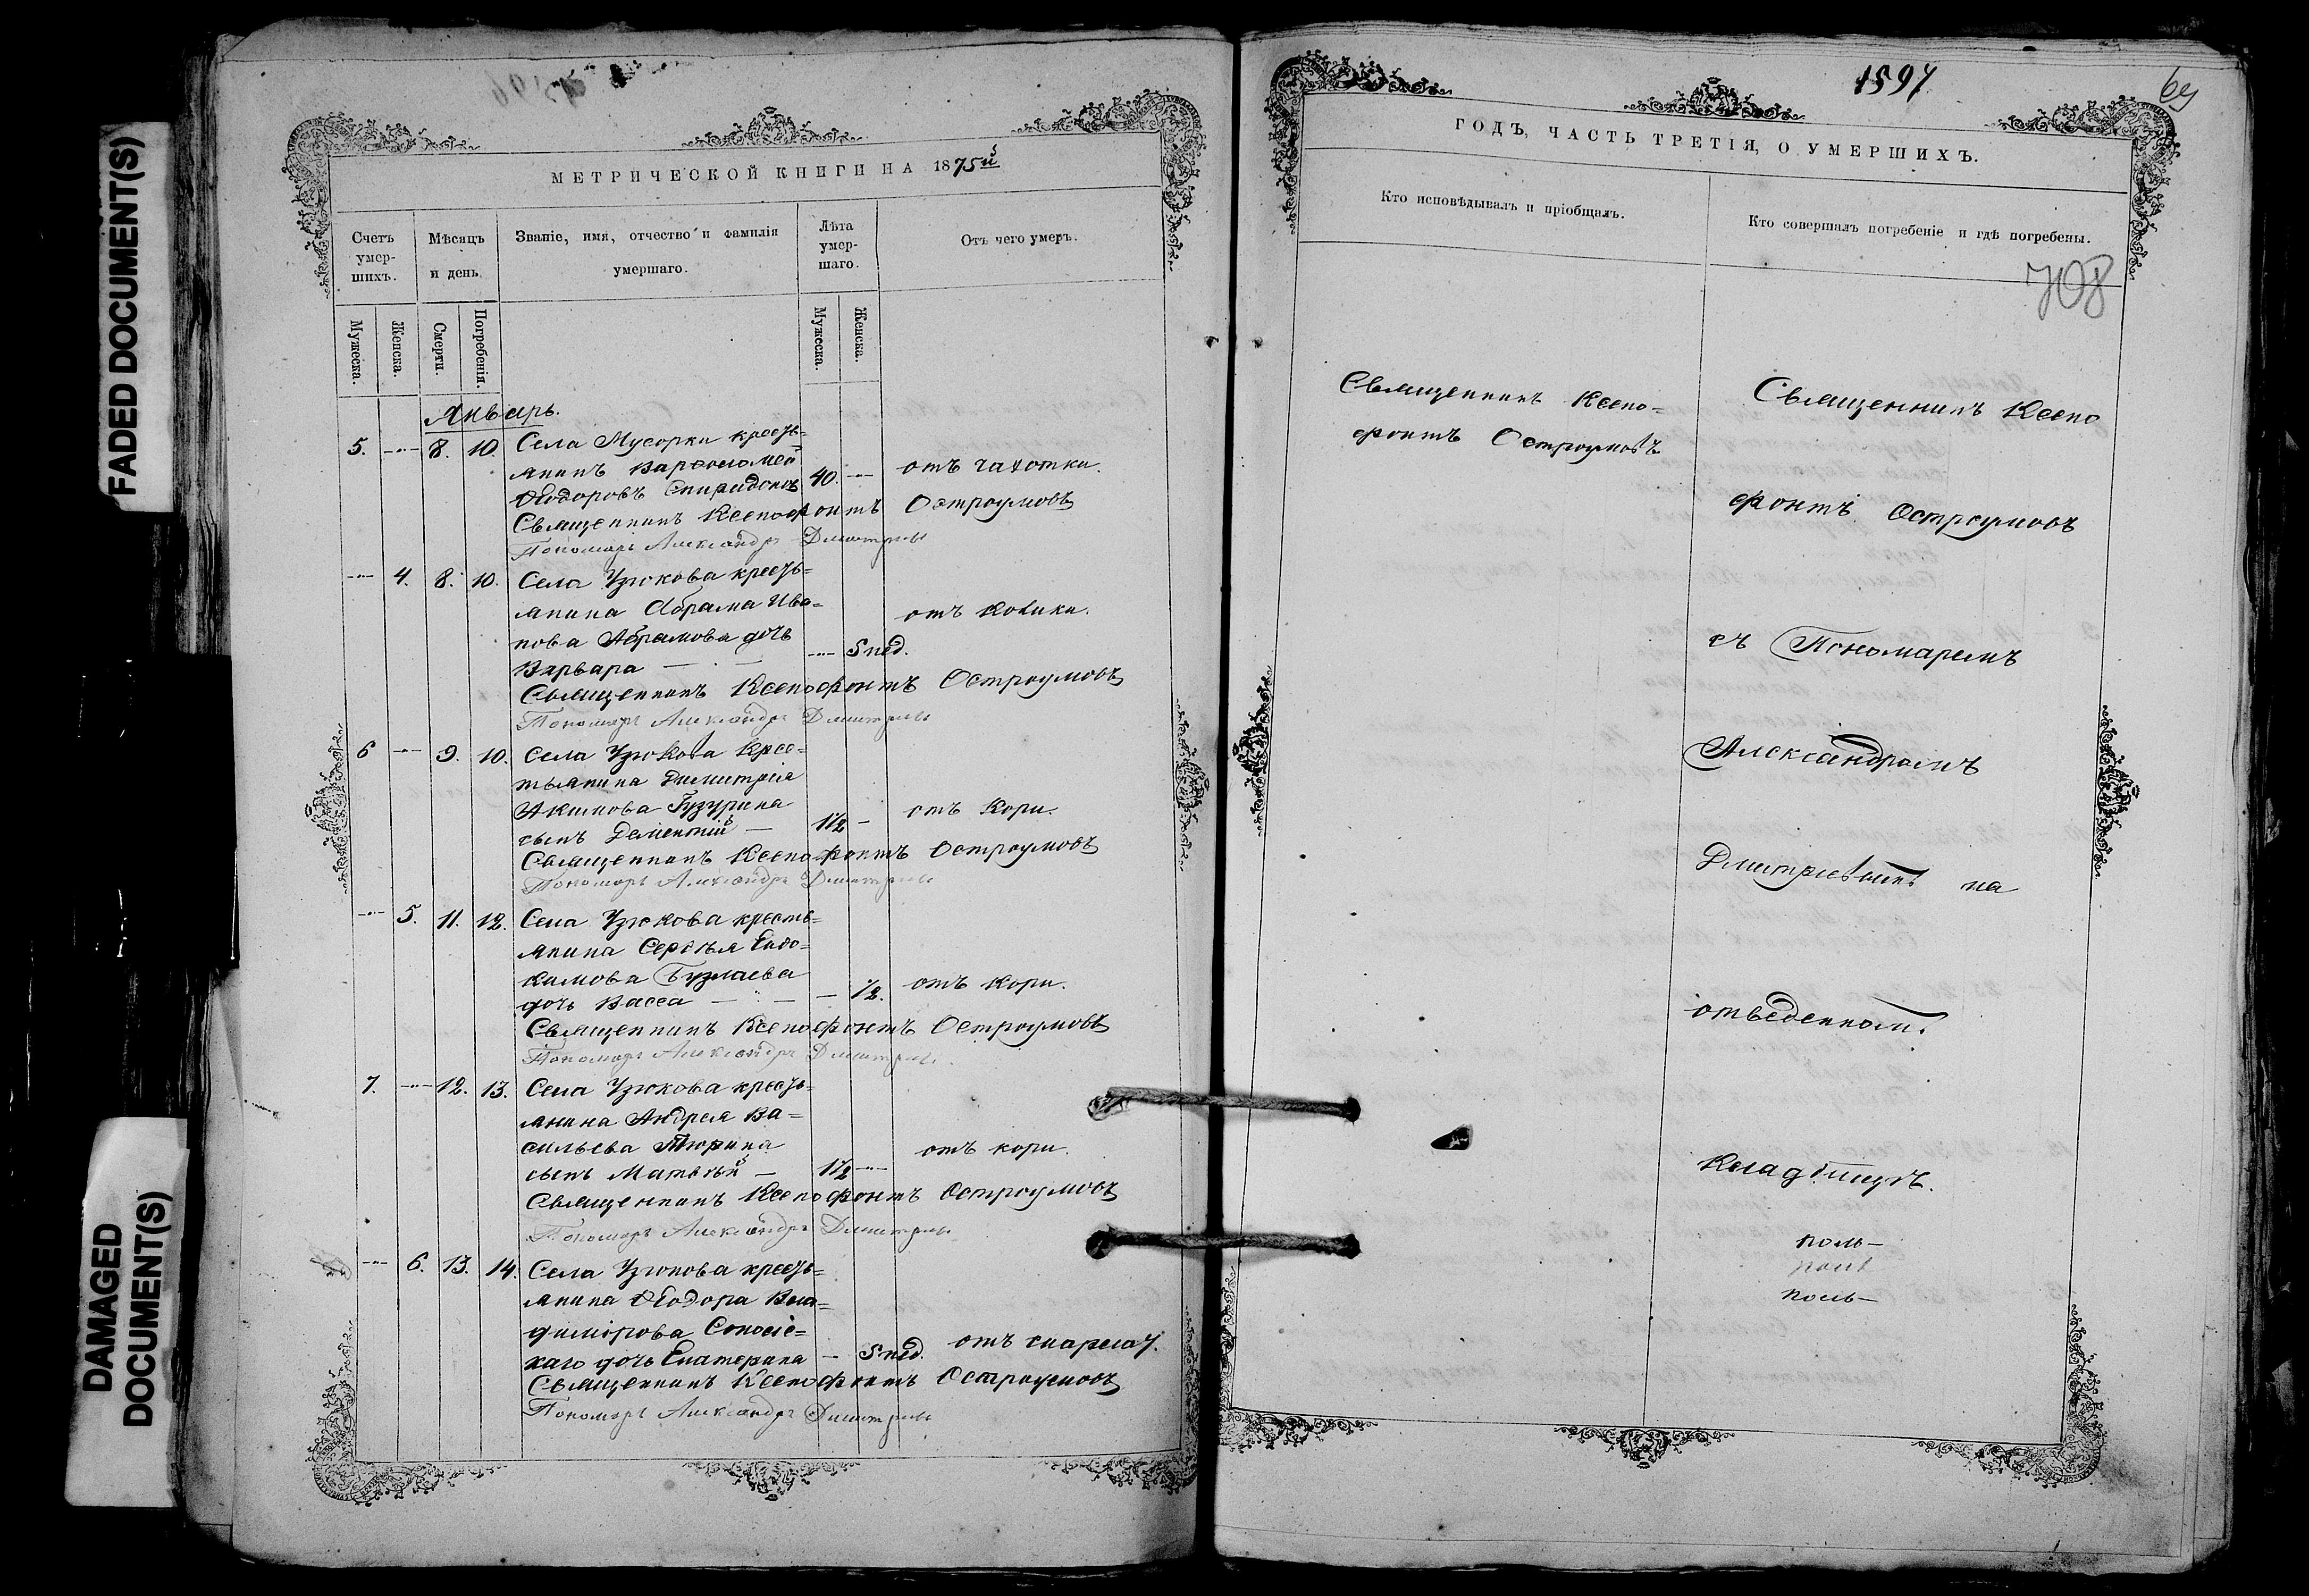 FADED DOCUMENT(S)
DAMAGED
DOCUMENT(S)
МЕТРИЧЕСКОЙ КНИГИ НА 1875й
Счетъ
умер-
шихъ.
Мѣсяцъ
и день.
Званіе, имя, отчество и фамилія
умершаго.
Лѣта
умер-
шаго.
Отъ чего умеръ.
Мужеска.
Женска.
Смерти.
Погребенія.
Мужеска.
Женска.
Январь.
5. 8. 10. Села Мусорки кресть=
янинъ Варѳоломей
Ѳеодоровъ Спиридоновъ 40. отъ чахотки.
Священникъ Ксенофонтъ Остроумовъ
Пономарь Александръ Дмитріевъ
4. 8. 10. Села Узюкова кресть=
янина Абрама Ива=
нова Абрамова дочь
Варвара 5 нед. отъ колики.
Священникъ Ксенофонтъ Остроумовъ
Пономарь Александръ Дмитріевъ
6 9. 10. Села Узюкова крес=
тьянина Димитрія
Акимова Гузурина
сынъ Дементій 1½ отъ кори.
Священникъ Ксенофонтъ Остроумовъ
Пономарь Александръ Дмитріевъ
5. 11. 12. Села Узюкова кресть=
янина Сергѣя Евдо=
кимова Бузлаева
дочь Васса ½. отъ кори.
Священникъ Ксенофонтъ Остроумовъ
Пономарь Александръ Дмитріевъ
7. 12. 13. Села Узюкова кресть=
янина Андрея Ва=
сильева Тюрина
сынъ Матвѣй 1½ отъ кори.
Священникъ Ксенофонтъ Остроумовъ
Пономарь Александръ Дмитріевъ
6. 13. 14. Села Узюкова кресть=
янина Ѳеодора Вла=
димірова
каго дочь Екатерина 5 нед. отъ
Священникъ Ксенофонтъ Остроумовъ
Пономарь Александръ Дмитріевъ
1597
69
ГОДЪ, ЧАСТЬ ТРЕТІЯ, О УМЕРШИХЪ.
Кто исповѣдывалъ и пріобщалъ.
Кто совершалъ погребеніе и гдѣ погребены.
708
Священникъ Ксено=
фонтъ Остроумовъ
Священникъ Ксено
фонтъ Остроумовъ
съ Пономаремъ
Александромъ
Дмитріевымъ на
отведенномъ
кладбищѣ.